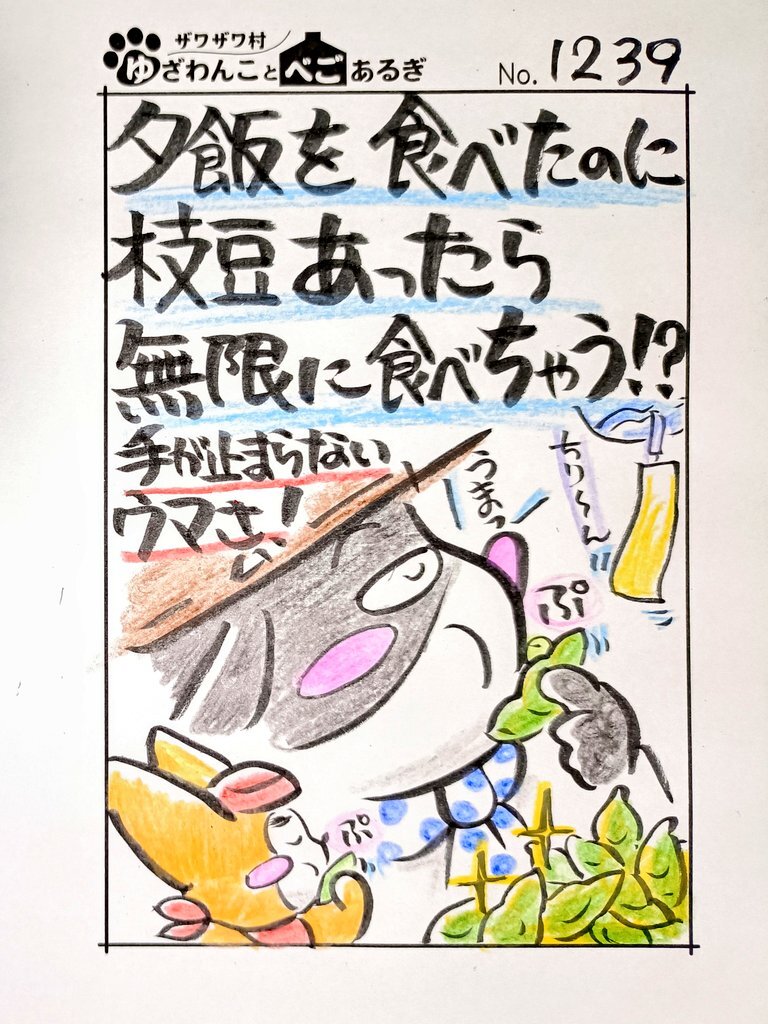 ザワザワ村
ゆざわんことべごあるぎ
No. 1239
夕飯を食べたのに
枝豆あったら
無限に食べちゃう!?
手が止まらない
ウマさい!
うまっ
ちり〜ん
ぷ
ぷ